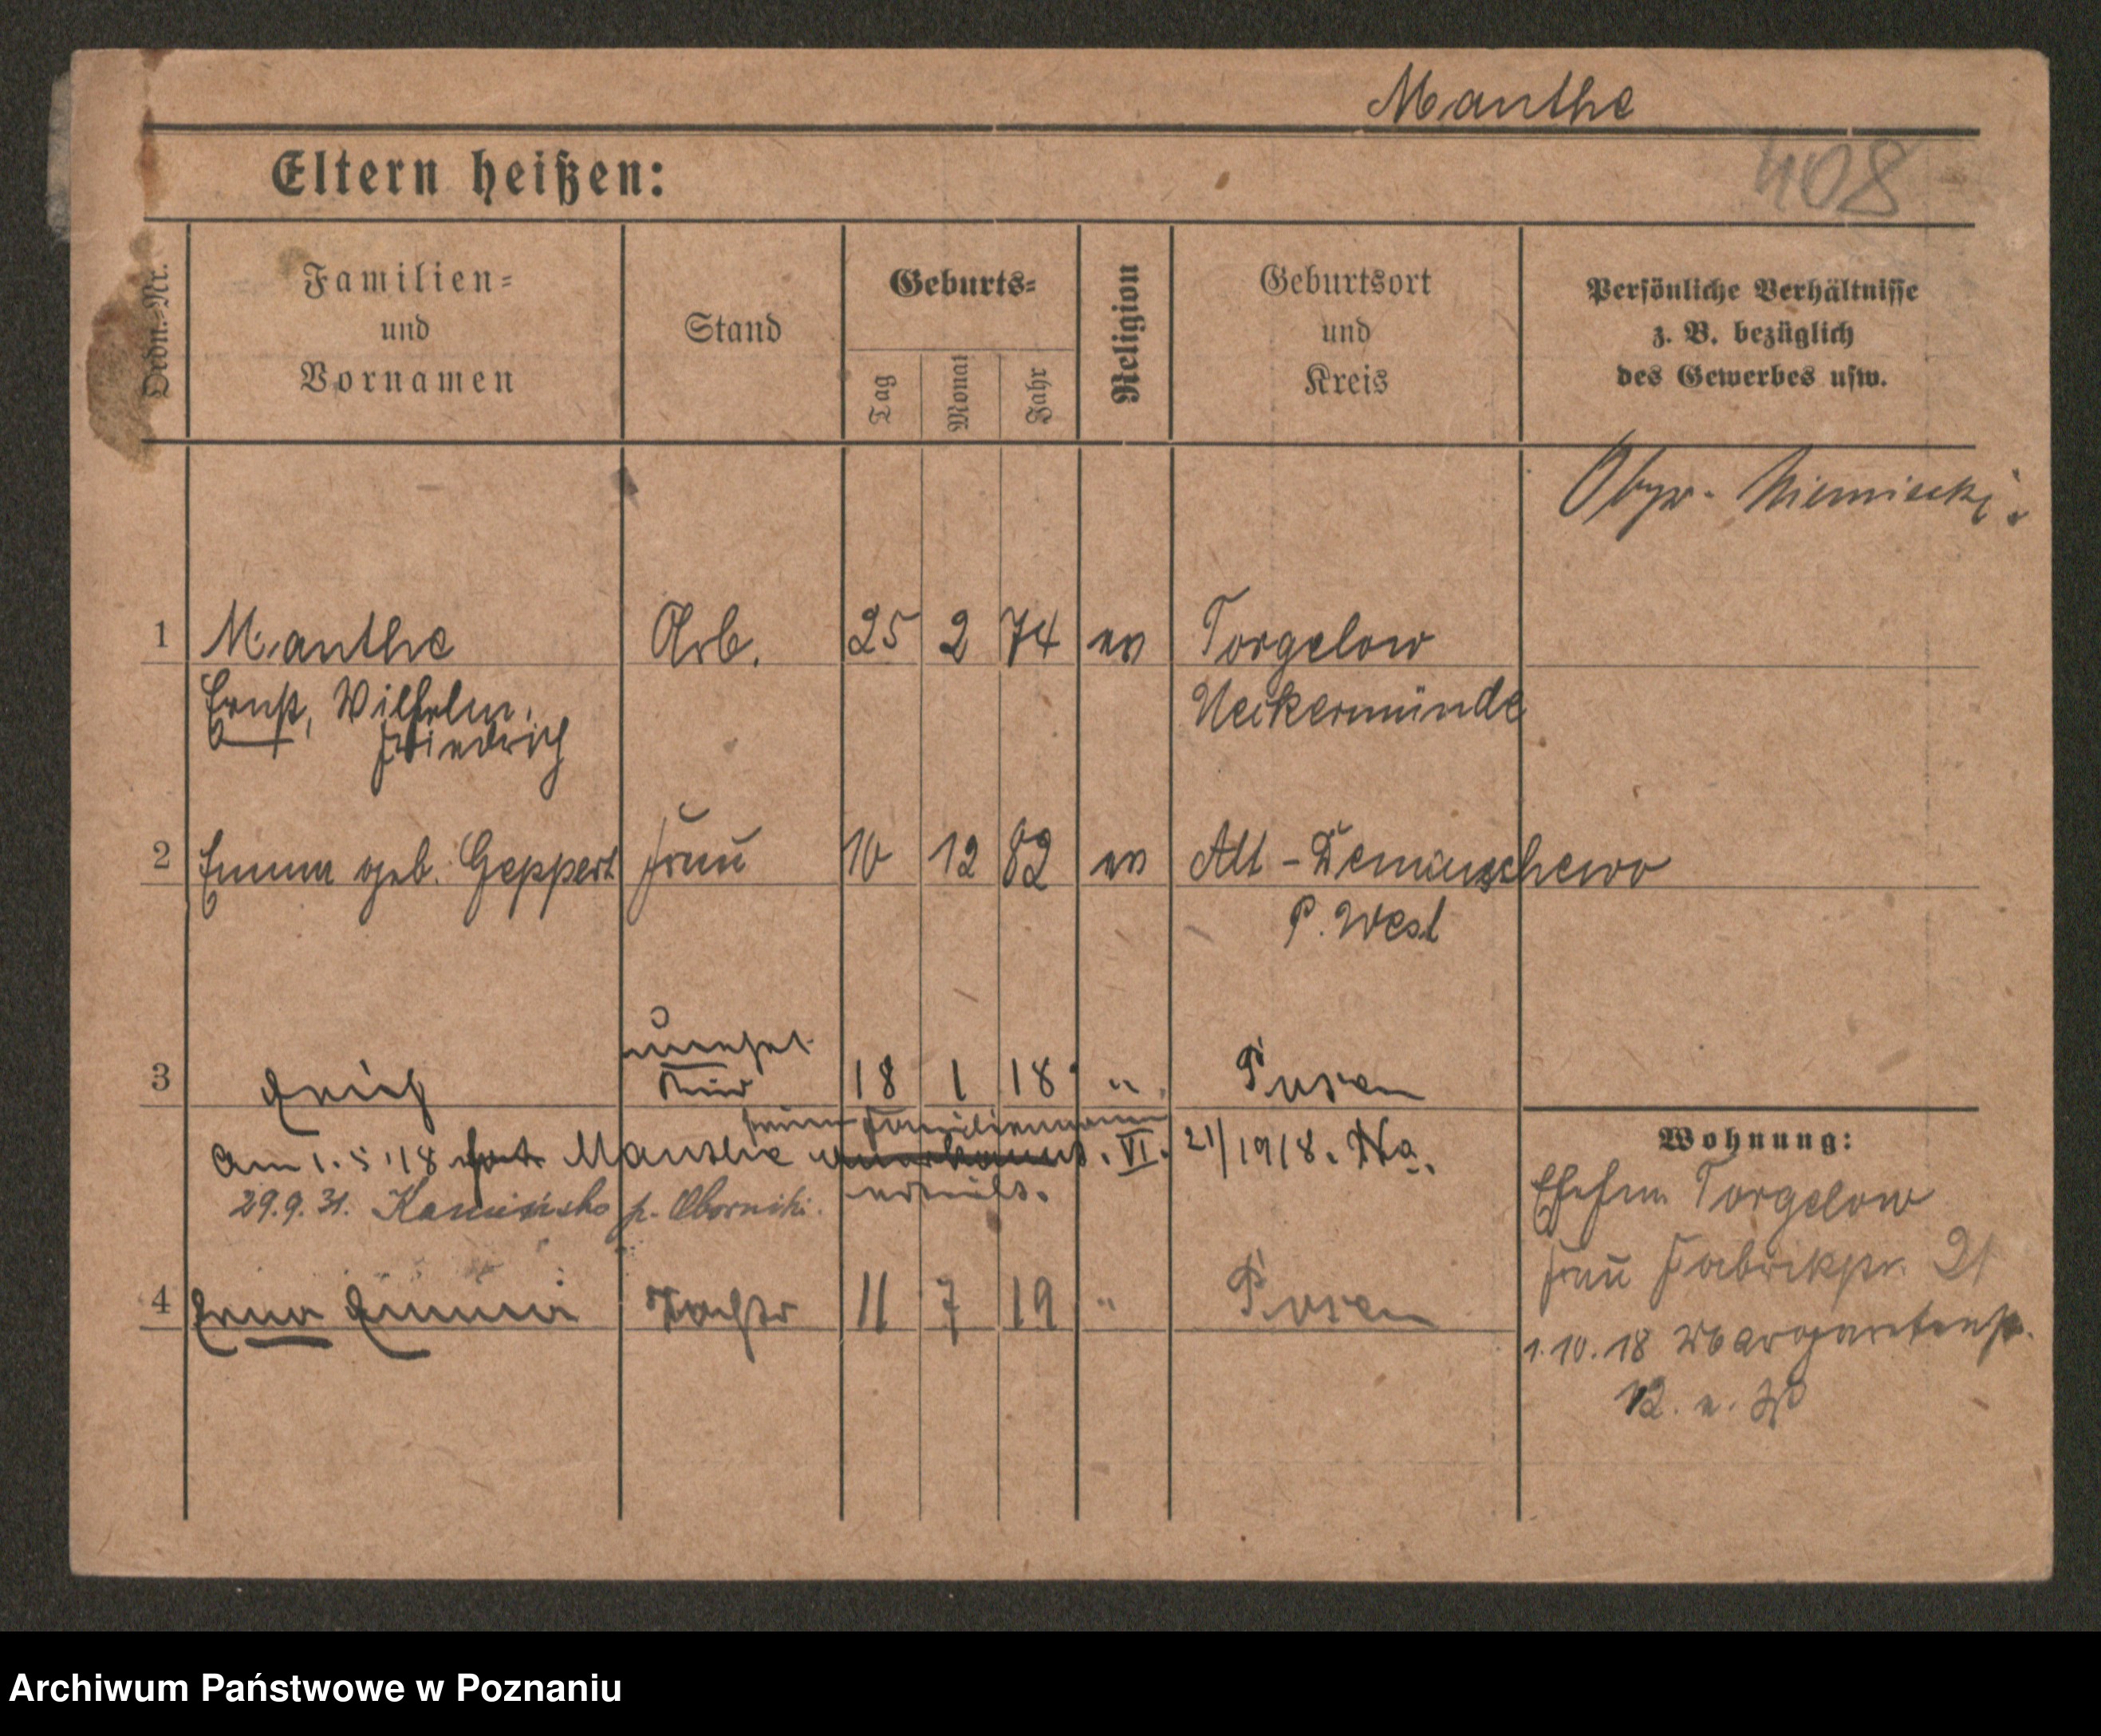 Manthe
408
Eltern heißen:
Ordn.-Nr.
Familien-
und
Vornamen
Stand
Geburts-
Tag
Monat
Jahr
Religion
Geburtsort
und
Kreis
Persönliche Verhältnisse
z. B. bezüglich
des Gewerbes usw.
Obyw. Niemiecki.
1 Manthe Arb. 25 2 74 ev Torgelow
Ernst, Wilhelm, Ueckermünde
Friedrich
2 Emma geb. Geppert Frau 10 12 82 ev Alt-Demanschewo
P. West
unehel
3 Erich Kind 18 1 18 " Posen
seinen Familiennamen
Am 1.5.18 hat Manthe anerkannt. VI. 21/1918. Na.
erteilt.
29.9.31. Kamińsko p. Oborniki.
4 Erna Emma Tochter 11 7 19 " Posen
Wohnung:
Ehefrau Torgelow
Frau Fabrikstr. 21
1.10.18 Margaretenstr.
12.
Archiwum Państwowe w Poznaniu